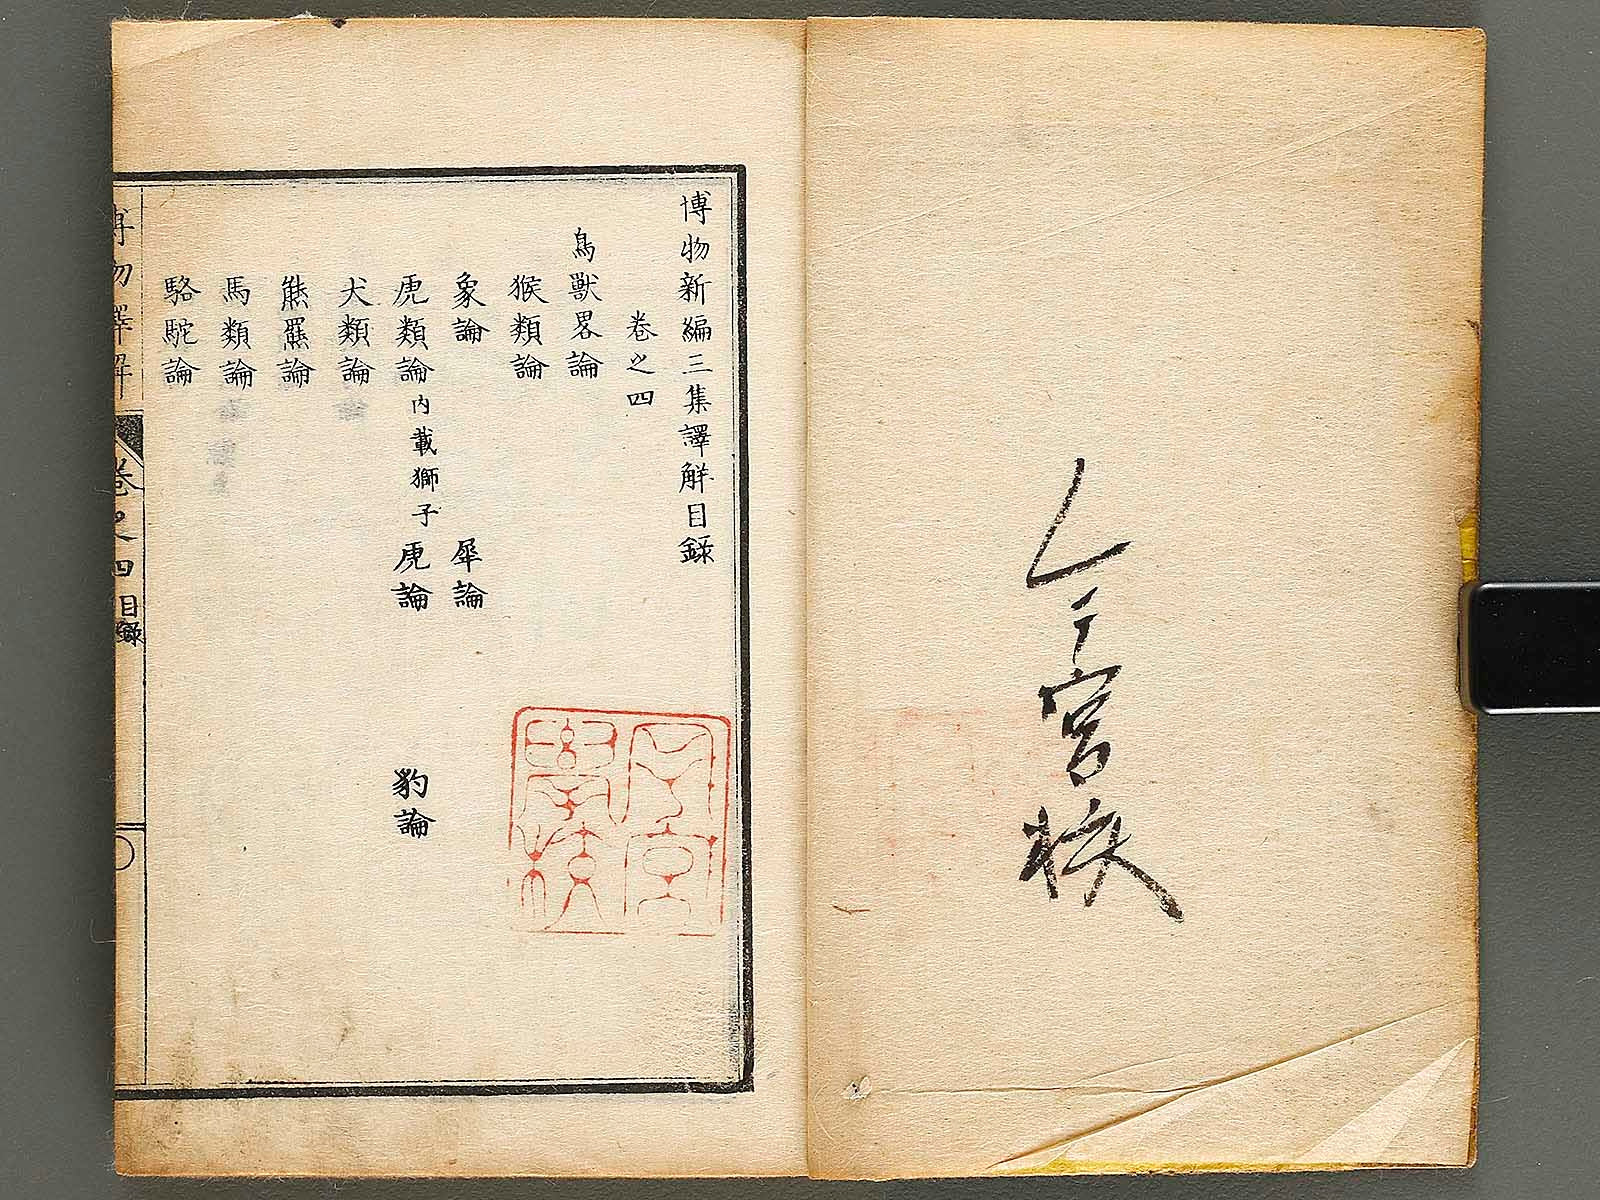 宮校
博物新編三集譯解目録
卷之四
鳥獸畧論
猴類論
象論 犀論
虎類論 内載獅子 虎論 豹論
犬類論
熊羆論
馬類論
駱駝論
博物譯解 卷之四 目録